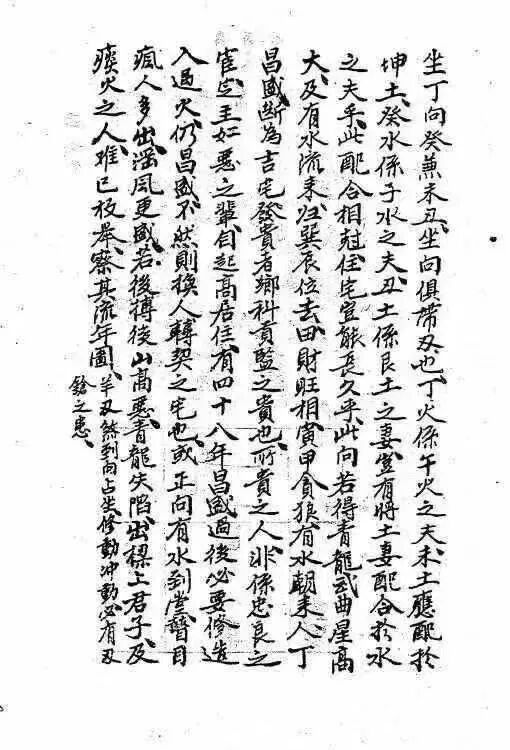 坐丁向癸兼未丑、坐向俱帶刄也、丁火係午火之夫、未土應配於
坤土、癸水係子水之夫、丑土係艮土之妻、豈有將土妻配合於水
之夫乎、此配合相尅、住宅豈能長久乎、此向若得青龍武曲星高
大、及有水流来归巽辰位去、田財旺相、寅甲貪狼有水朝来、人丁
昌盛、断為吉宅、發貴者鄉科貢監之貴也、所貴之人、非係忠良之
官、定主如惡之輩、自起高居住、有四十八年昌盛、過後必要修造
入過火、仍昌盛、不然則換人轉契之宅也、或正向有水到堂、瞽目
瘋人多出、滛風更盛、若後摶後山高惡、青龍失陷、出樑上君子、及
痰火之人、难已枚舉、察其流年圖、羊刄煞到向占坐、修動冲動、必有刄
鎗之患、